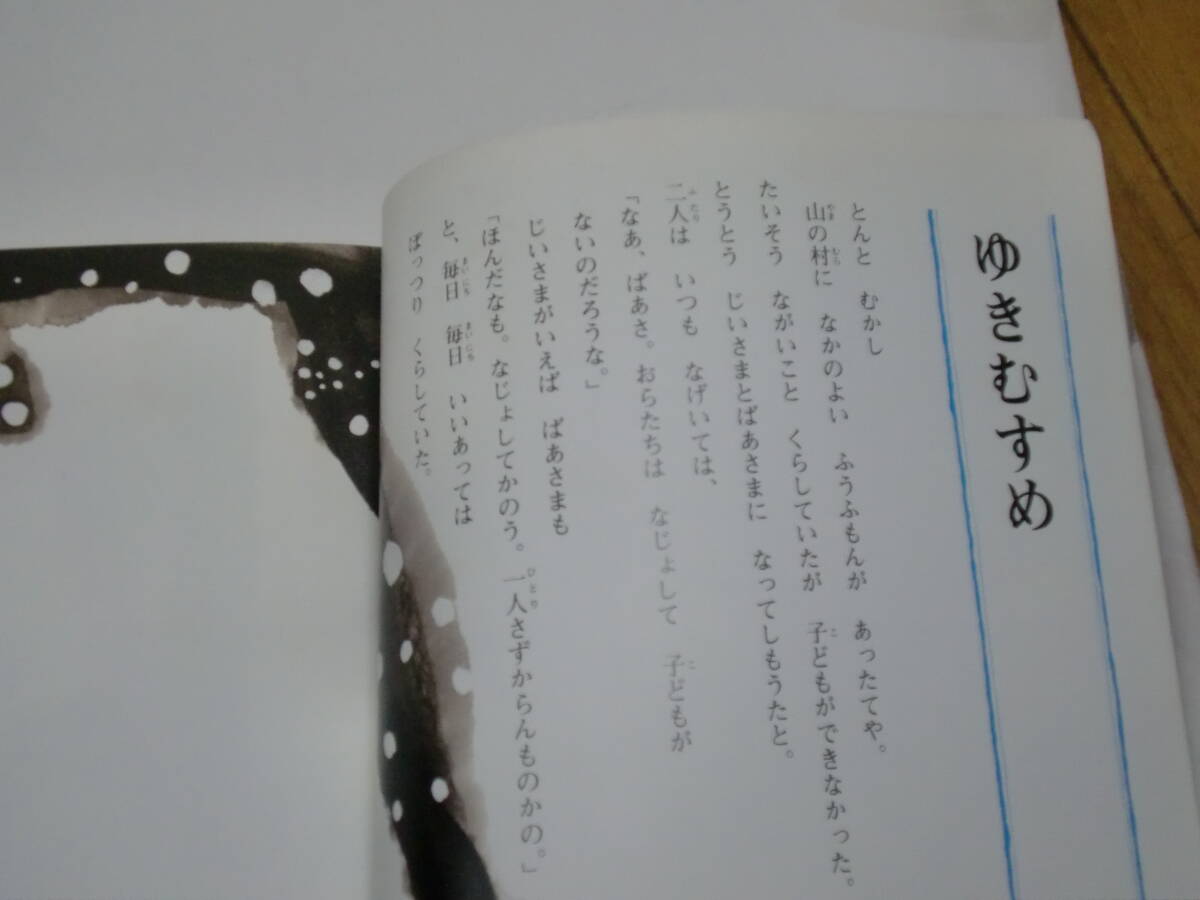 ゆきむすめ
とんと むかし
山の村に なかのよい ふうふもんが あったてや。
たいそう ながいこと くらしていたが 子どもができなかった。
とうとう じいさまとばあさまに なってしもうたと。
二人は いつも なげいては、
「なあ、ばあさ。おらたちは なじょして 子どもが
ないのだろうな。」
じいさまがいえば ばあさまも
「ほんだなも。なじょしてかのう。一人さずからんものかの。」
と、毎日 毎日 いいあっては
ぽっつり くらしていた。